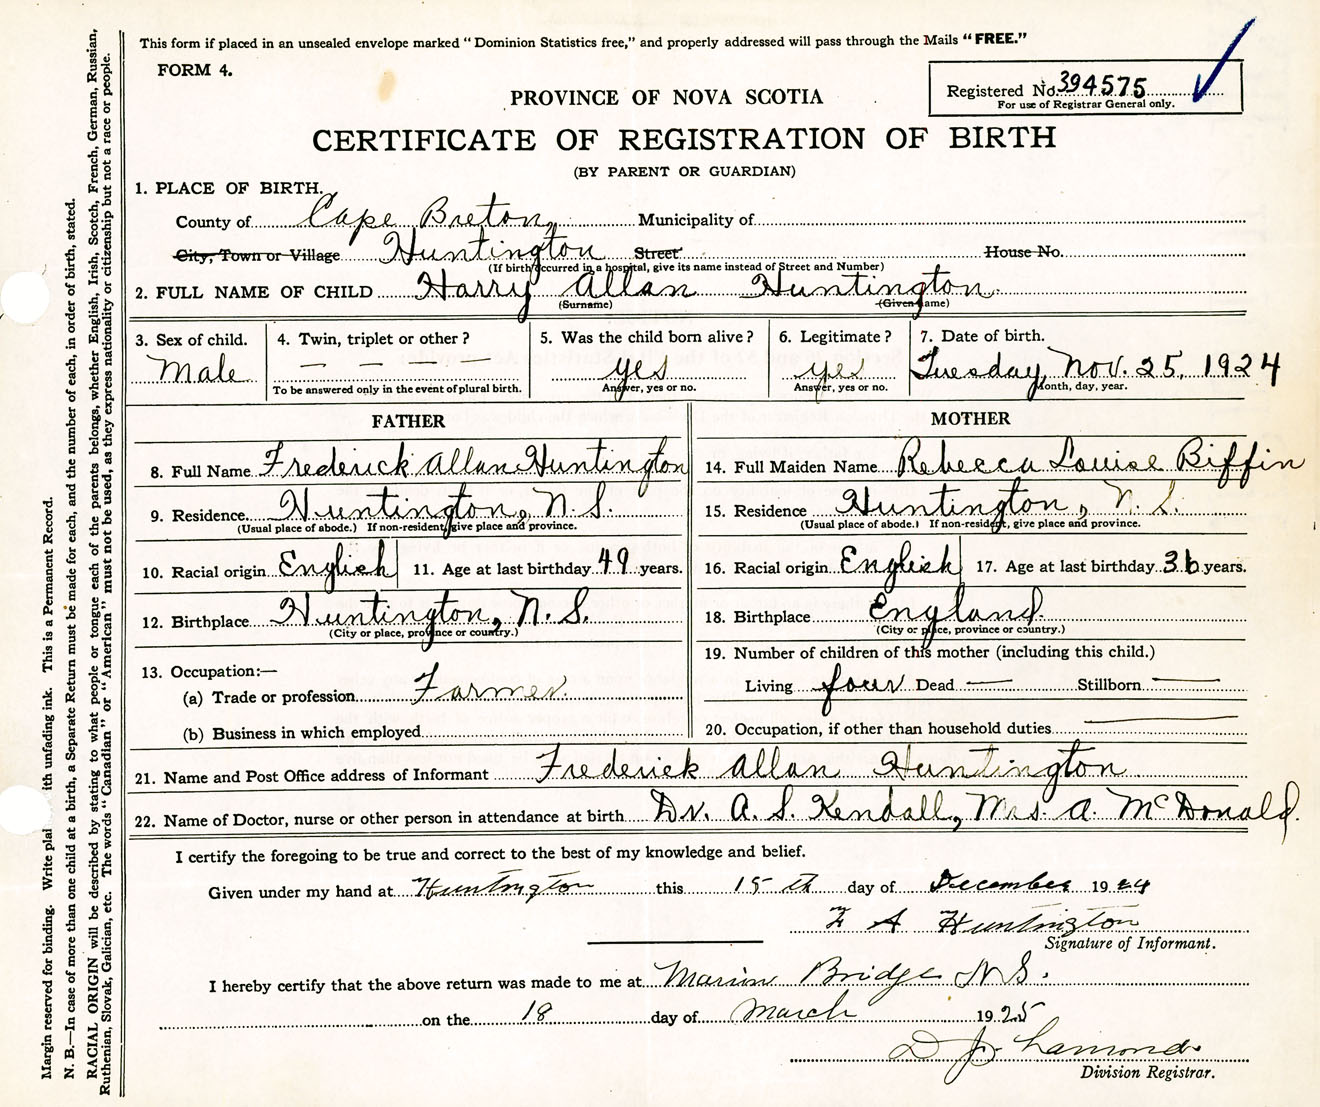 This form if placed in an unsealed envelope marked "Dominion Statistics free," and properly addressed will pass through the Mails "FREE."
FORM 4.
Registered No. 394575
For use of Registrar General only.
PROVINCE OF NOVA SCOTIA
CERTIFICATE OF REGISTRATION OF BIRTH
(BY PARENT OR GUARDIAN)
1. PLACE OF BIRTH.
County of Cape Breton, Municipality of
City, Town or Village Huntington Street House No.
(If birth occurred in a hospital, give its name instead of Street and Number)
2. FULL NAME OF CHILD Harry Allan Huntington.
(Surname) (Given name)
3. Sex of child. 4. Twin, triplet or other? 5. Was the child born alive? 6. Legitimate? 7. Date of birth.
Male — — — yes yes Tuesday, Nov. 25, 1924
To be answered only in the event of plural birth. Answer, yes or no. Answer, yes or no. Month, day, year.
FATHER
8. Full Name Frederick Allan Huntington
9. Residence Huntington, N.S.
(Usual place of abode.) If non-resident, give place and province.
10. Racial origin English 11. Age at last birthday 49 years.
12. Birthplace Huntington, N.S.
(City or place, province or country.)
13. Occupation:—
(a) Trade or profession Farmer.
(b) Business in which employed
MOTHER
14. Full Maiden Name Rebecca Louise Biffin
15. Residence Huntington, N.S.
(Usual place of abode.) If non-resident, give place and province.
16. Racial origin English 17. Age at last birthday 36 years.
18. Birthplace England.
(City or place, province or country.)
19. Number of children of this mother (including this child.)
Living four Dead — Stillborn —
20. Occupation, if other than household duties —
21. Name and Post Office address of Informant Frederick Allan Huntington
22. Name of Doctor, nurse or other person in attendance at birth Dr. A. S. Kendall, Mrs. A. McDonald.
I certify the foregoing to be true and correct to the best of my knowledge and belief.
Given under my hand at Huntington this 15th day of December 1924
F A Huntington
Signature of Informant.
I hereby certify that the above return was made to me at Marion Bridge N.S.
on the 18 day of March 1925
D J Lamond
Division Registrar.
Margin reserved for binding. Write plai ith unfading ink. This is a Permanent Record.
N. B.—In case of more than one child at a birth, a Separate Return must be made for each, and the number of each, in order of birth, stated.
RACIAL ORIGIN will be described by stating to what people or tongue each of the parents belongs, whether English, Irish, Scotch, French, German, Russian,
Ruthenian, Slovak, Galician, etc. The words "Canadian" or "American" must not be used, as they express nationality or citizenship but not a race or people.